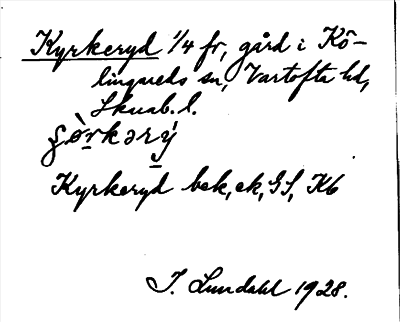 Kyrkeryd 1/4 fr, gård i Kö-
lingareds sn, Vartofta hd,
Skarab. l.
Kyrkeryd bek, ek, GS, Kb
I. Lundahl 1928.